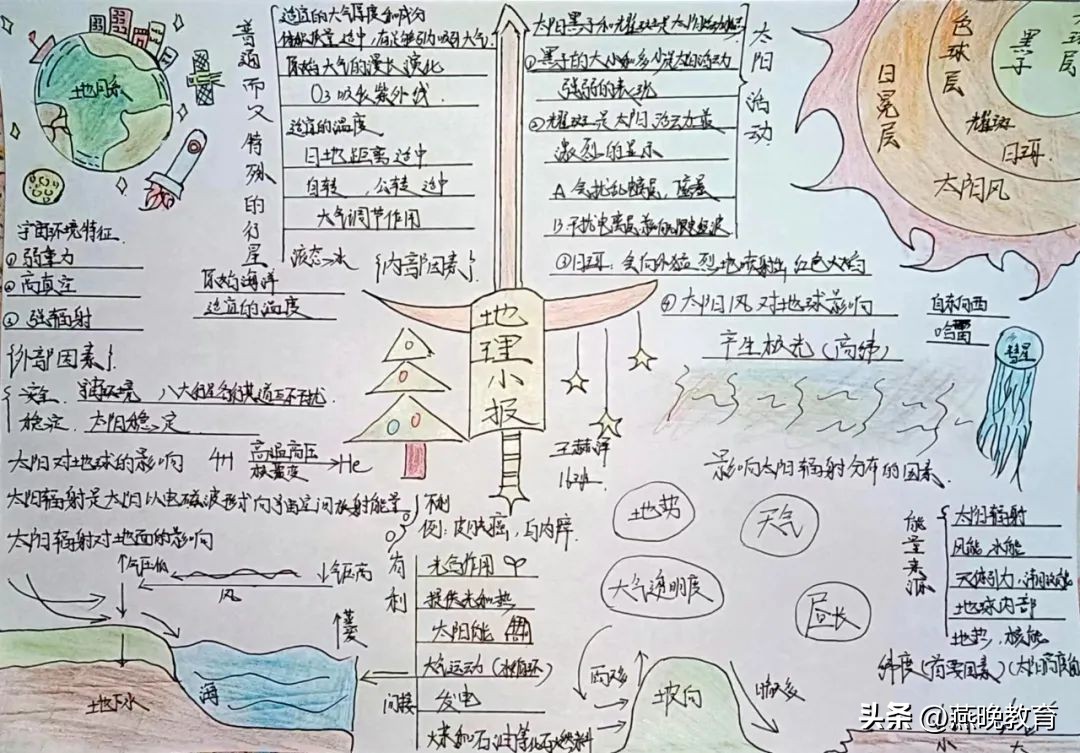 地球
普通而又特殊的行星
适宜的大气厚度和成分
体积质量适中,有足够引力吸引大气
原始大气的漫长演化
O3吸收紫外线
适宜的温度
日地距离适中
自转、公转适中
大气调节作用
液态水
{内部因素}
原始海洋
适宜的温度
宇宙环境特征
①弱重力
②高真空
③强辐射
{外部因素}
安全、宇宙环境 八大行星各行其道互不干扰
稳定、太阳稳定
太阳对地球的影响 4H 高温高压 核聚变 He
太阳辐射是太阳以电磁波形式向宇宙空间放射能量
太阳辐射对地面的影响
不利
例:皮肤癌,白内障
有利
光合作用
提供光和热
太阳能
大气运动(水循环)
间接
发电
煤和石油等化石燃料
气压低
气压高
风
蒸发
地下水
海
地理小报
王赫泽
16班
太阳活动
太阳黑子和耀斑是太阳活动标志
①黑子的大小和多少是太阳活动
强弱的表现
②耀斑是太阳活动最
激烈的显示
A
B 干扰电离层影响无线电短波
③日珥:会向外猛烈地喷射出红色火焰
④太阳风对地球影响
产生极光(高纬)
日冕层
色球层
黑子
球层
耀斑
日珥
太阳风
自东向西
哈雷
彗星
影响太阳辐射分布的因素
地势
天气
大气透明度
昼长
雨多
坡向
晴多
能量来源
太阳辐射
风能 水能
天体引力
地球内部
地热,核能
纬度(首要因素)(太阳高度角
小
头条 @燕晚教育